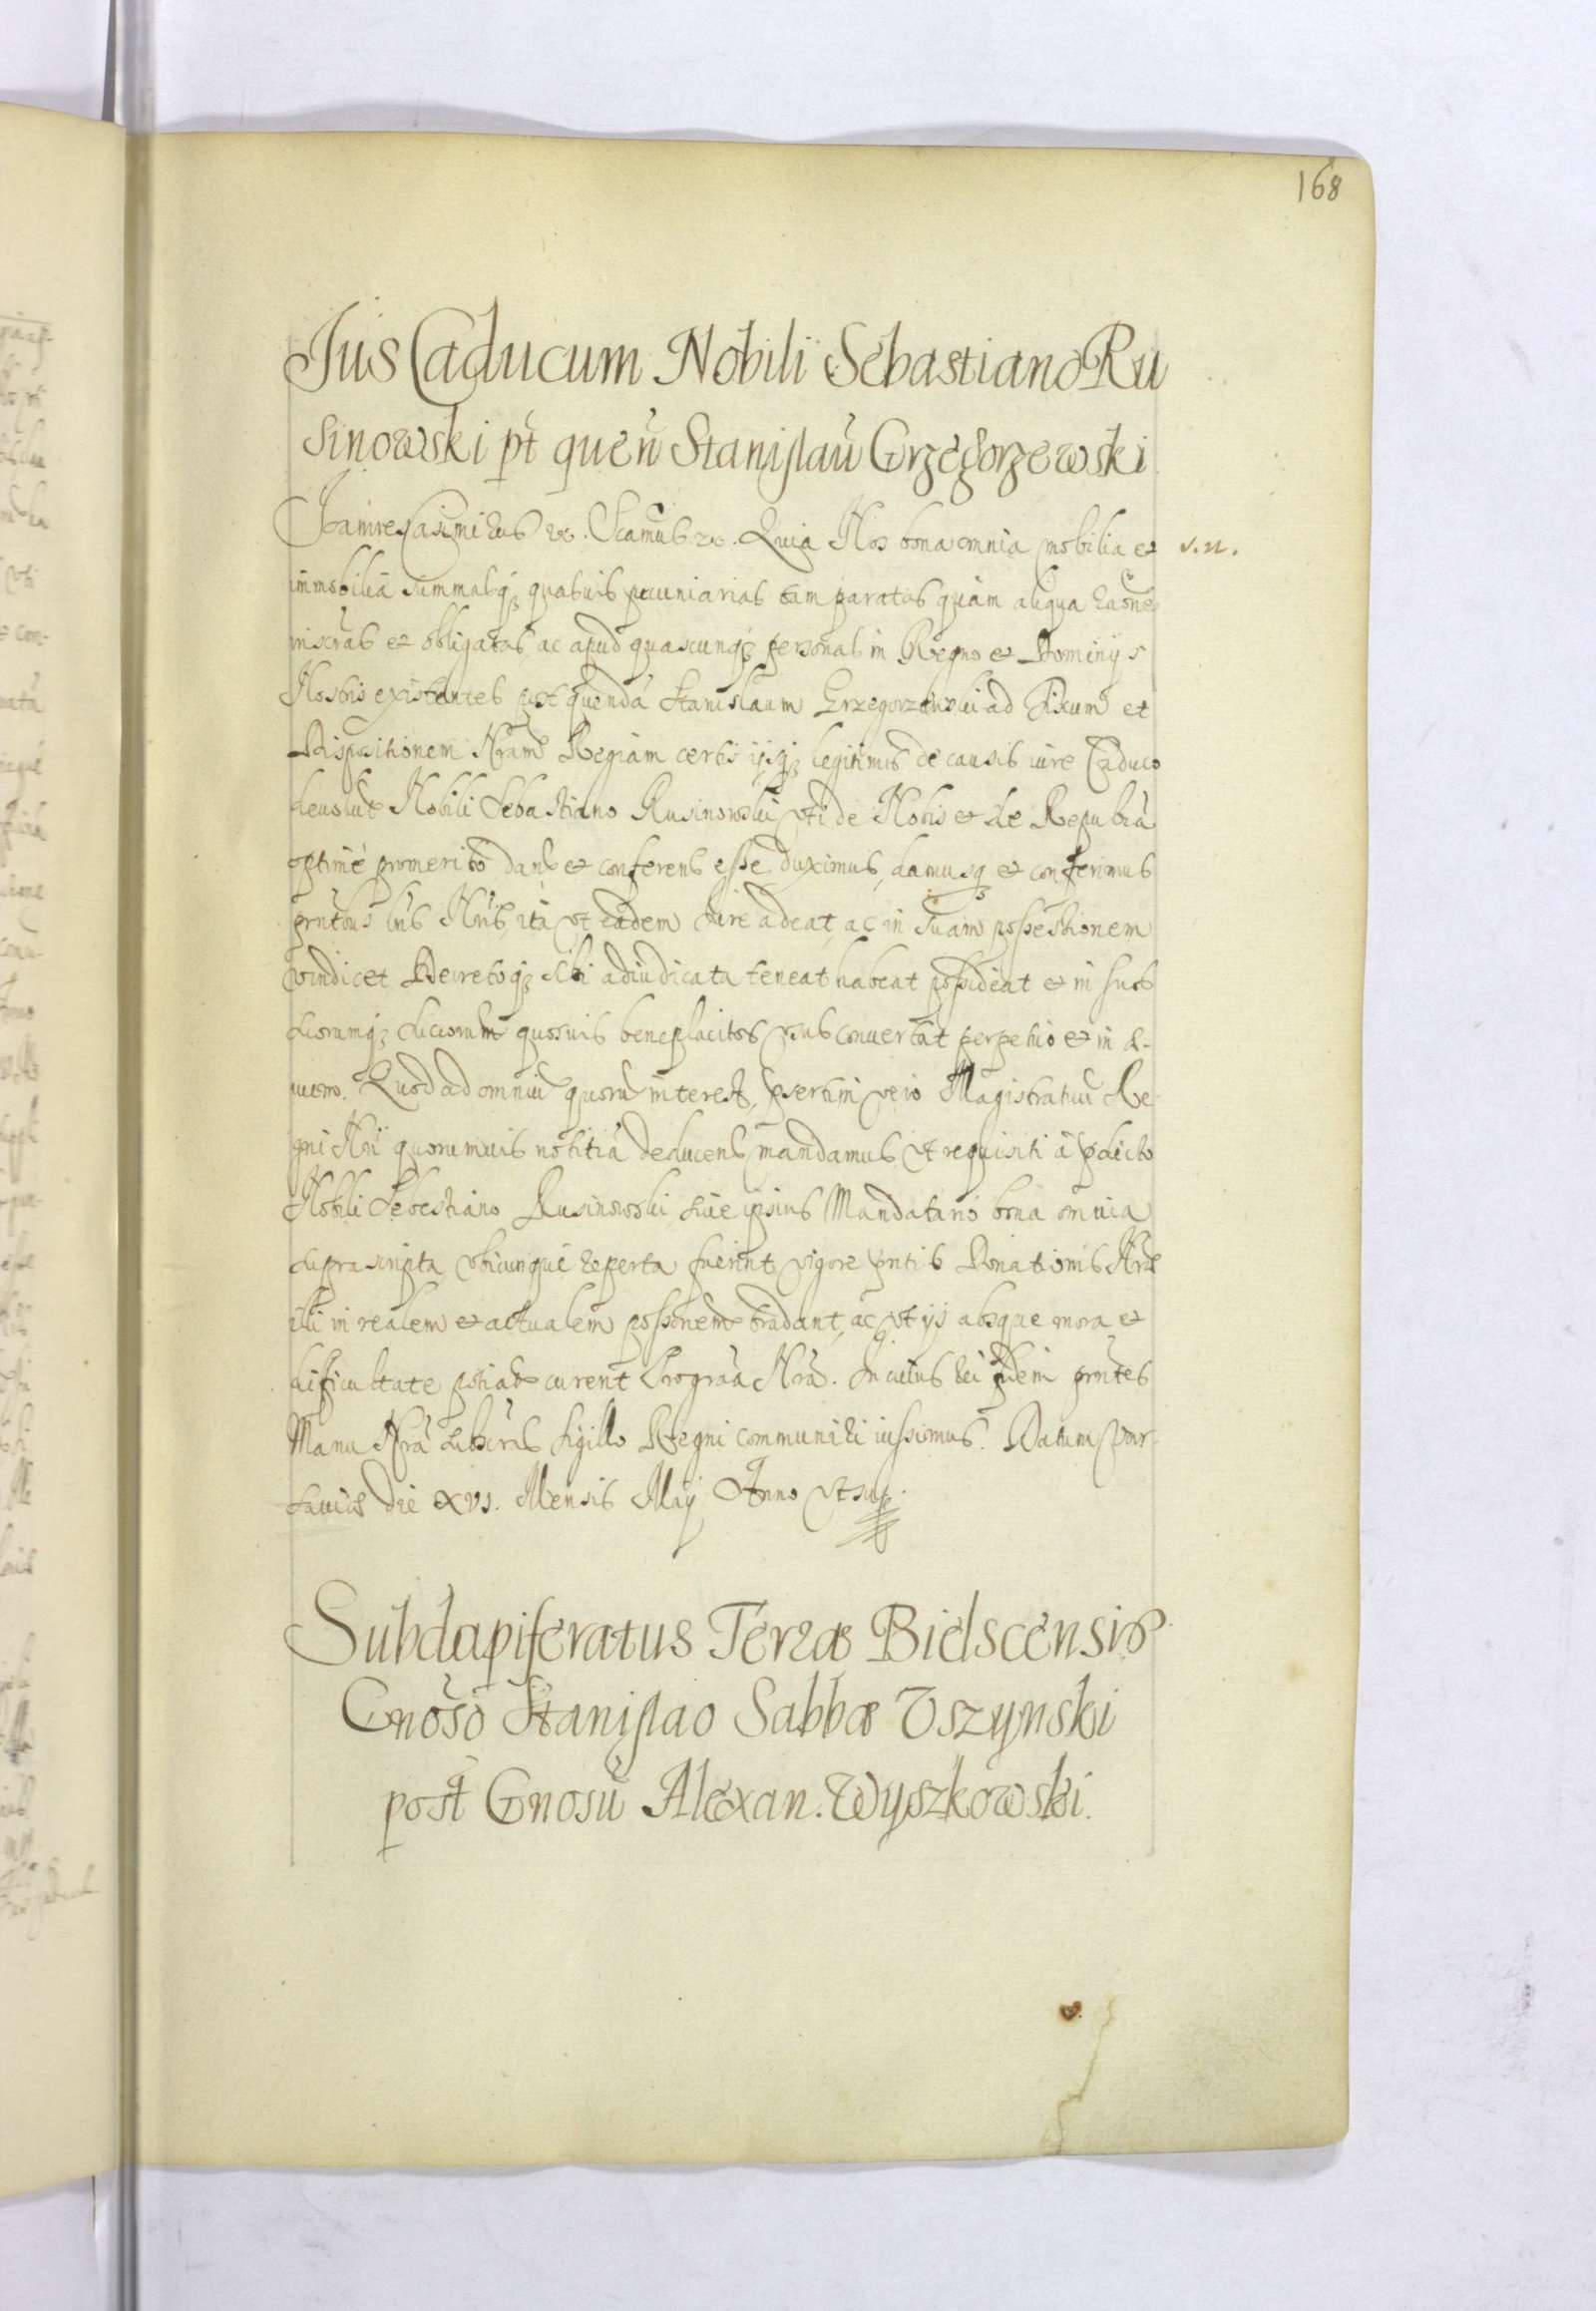 168
Jus Caducum Nobili Sebastiano Ru
sinowski pt quen Stanislau Grzegorzewski
Joannes Casimirus etc. Scamus etc. Quia Nos bona omnia mobilia et s.n.
immobilia summasq quasuis pecuniarias tam paratas quàm aliqua raone
inscras et obligatas, ac apud quascunq personas in Regno et Dominijs
Nostris existentes post quendã Stanislaum Grzegorzewski ad Fiscum et
Dispositionem Nram Regiam certis ijsq legitimis de causis iure Caduco
deuolut Nobili Sebastiano Rusinowski vti de Nobis et de Republca
optimè promerito dand et conferend esse duximus, damusq et conferimus
prntibus lris Nris, ità vt eadem iure adeat, ac in suam possessionem
vindicet Decretoq sibi adiudicata teneat habeat possideat et in suos
suorumq succorum quosuis beneplacitos vsus conuertat perpetuò et in æ-
uum. Quod ad omniu quoru interest, psertim vero Magistratuu Re-
gni Nri quorumuis notitiã deducend mandamus vt requisiti à pdicto
Nobili Sebestiano Rusinowski siue ipsius Mandatario bona omnia
suprascripta vbicunque reperta fuerint vigore pntis Donationis Nræ
illi in realem et actualem possonem tradant, ac vt ijs absque mora et
dificultate potiatur curent Pro graa Nra. In cuius rei fidem prntes
Manu Nra subscras Sigillo Regni communiri iussimus. Datum Var-
sauiæ Die XVI. Mensis Maij Anno vt sup.
Subdapiferatus Terræ Bielscensis
Gnoso Stanislao Sabbæ Vszynski
post Gnosu Alexan. Wyszkowski.